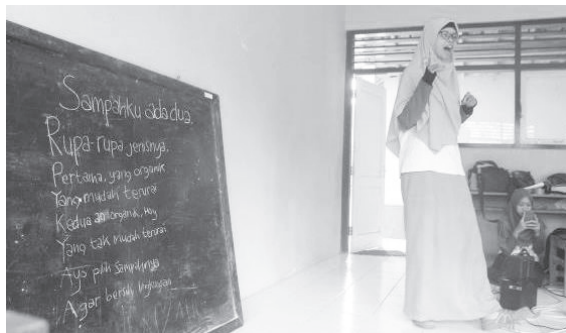 Sampahku ada dua.
Rupa-rupa jenisnya.
Pertama, yang organik
Yang mudah terurai
Kedua organik, Hey
Yang tak mudah terurai
Ayo pilih sampahnya
Agar bersih lingkungan